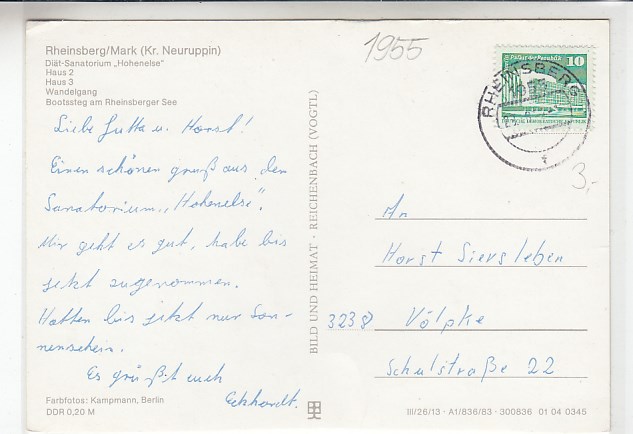 Rheinsberg/Mark (Kr. Neuruppin)
Diät-Sanatorium „Hohenelse"
Haus 2
Haus 3
Wandelgang
Bootssteg am Rheinsberger See
1955
Palast der Republik 10
RHEINSBERG
f
3,-
Liebe Jutta u. Horst!
Einen schönen gruß aus den
Sanatorium „Hohenelse".
Mir geht es gut, habe bis
jetzt zugenommen.
Hatten bis jetzt nur Son-
nenschein.
Es grüßt euch
Eckhardt.
BILD UND HEIMAT · REICHENBACH (VOGTL)
An
Horst Siersleben
3238 Völpke
Schulstraße 22
Farbfotos: Kampmann, Berlin
DDR 0,20 M
III/26/13 · A1/836/83 · 300836 01 04 0345